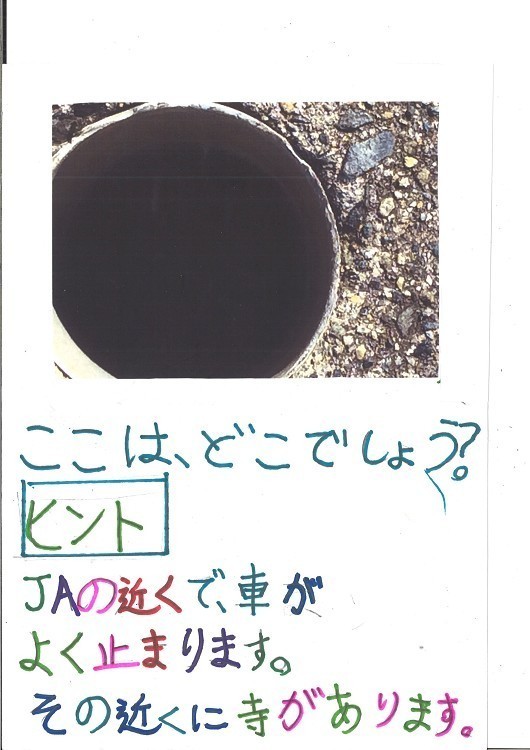 ここは、どこでしょう?
ヒント
JAの近くで、車が
よく止まります。
その近くに寺があります。